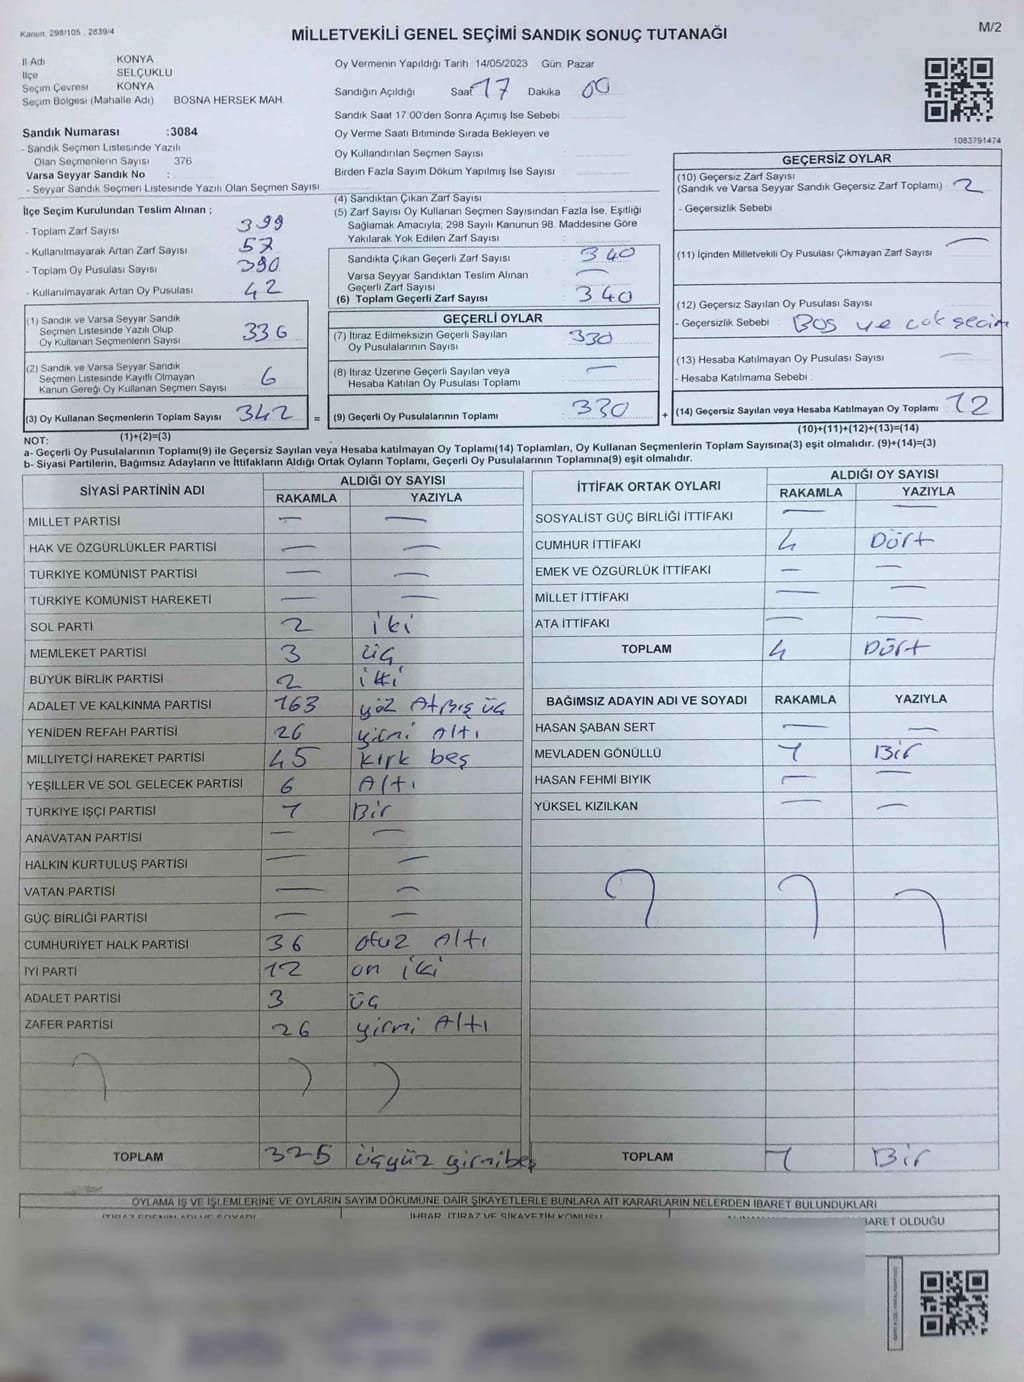 Kanun 298/105 . 2839/4
MİLLETVEKİLİ GENEL SEÇİMİ SANDIK SONUÇ TUTANAĞI
M/2
İl Adı KONYA
İlçe SELÇUKLU
Seçim Çevresi KONYA
Seçim Bölgesi (Mahalle Adı) BOSNA HERSEK MAH.
Oy Vermenin Yapıldığı Tarih 14/05/2023 Gün: Pazar
Sandığın Açıldığı Saat 17 Dakika 00
Sandık Saat 17.00'den Sonra Açımış İse Sebebi
Oy Verme Saati Bitiminde Sırada Bekleyen ve
Oy Kullandırılan Seçmen Sayısı
Birden Fazla Sayım Döküm Yapılmış İse Sayısı
1083791474
Sandık Numarası :3084
- Sandık Seçmen Listesinde Yazılı
Olan Seçmenlerin Sayısı 376
Varsa Seyyar Sandık No :
- Seyyar Sandık Seçmen Listesinde Yazılı Olan Seçmen Sayısı
İlçe Seçim Kurulundan Teslim Alınan ;
- Toplam Zarf Sayısı 399
- Kullanılmayarak Artan Zarf Sayısı 57
- Toplam Oy Pusulası Sayısı 390
- Kullanılmayarak Artan Oy Pusulası 42
(1) Sandık ve Varsa Seyyar Sandık
Seçmen Listesinde Yazılı Olup
Oy Kullanan Seçmenlerin Sayısı 336
(2) Sandık ve Varsa Seyyar Sandık
Seçmen Listesinde Kayıtlı Olmayan
Kanun Gereği Oy Kullanan Seçmen Sayısı 6
(3) Oy Kullanan Seçmenlerin Toplam Sayısı 342 =
(1)+(2)=(3)
(4) Sandıktan Çıkan Zarf Sayısı
(5) Zarf Sayısı Oy Kullanan Seçmen Sayısından Fazla İse, Eşitliği
Sağlamak Amacıyla, 298 Sayılı Kanunun 98. Maddesine Göre
Yakılarak Yok Edilen Zarf Sayısı :
Sandıkta Çıkan Geçerli Zarf Sayısı : 340
Varsa Seyyar Sandıktan Teslim Alınan
Geçerli Zarf Sayısı : —
(6) Toplam Geçerli Zarf Sayısı : 340
GEÇERLİ OYLAR
(7) İtiraz Edilmeksizin Geçerli Sayılan
Oy Pusulalarının Sayısı : 330
(8) İtiraz Üzerine Geçerli Sayılan veya
Hesaba Katılan Oy Pusulası Toplamı : —
(9) Geçerli Oy Pusulalarının Toplamı : 330 +
GEÇERSİZ OYLAR
(10) Geçersiz Zarf Sayısı
(Sandık ve Varsa Seyyar Sandık Geçersiz Zarf Toplamı) : 2
- Geçersizlik Sebebi
(11) İçinden Milletvekili Oy Pusulası Çıkmayan Zarf Sayısı —
(12) Geçersiz Sayılan Oy Pusulası Sayısı
- Geçersizlik Sebebi : Boş ve çok seçim
(13) Hesaba Katılmayan Oy Pusulası Sayısı —
- Hesaba Katılmama Sebebi :
(14) Geçersiz Sayılan veya Hesaba Katılmayan Oy Toplamı 12
(10)+(11)+(12)+(13)=(14)
NOT:
a- Geçerli Oy Pusulalarının Toplamı(9) ile Geçersiz Sayılan veya Hesaba katılmayan Oy Toplamı(14) Toplamları, Oy Kullanan Seçmenlerin Toplam Sayısına(3) eşit olmalıdır. (9)+(14)=(3)
b- Siyasi Partilerin, Bağımsız Adayların ve İttifakların Aldığı Ortak Oyların Toplamı, Geçerli Oy Pusulalarının Toplamına(9) eşit olmalıdır.
SİYASİ PARTİNİN ADI ALDIĞI OY SAYISI
RAKAMLA YAZIYLA
MİLLET PARTİSİ — —
HAK VE ÖZGÜRLÜKLER PARTİSİ — —
TÜRKİYE KOMÜNİST PARTİSİ — —
TÜRKİYE KOMÜNİST HAREKETİ — —
SOL PARTİ 2 iki
MEMLEKET PARTİSİ 3 üç
BÜYÜK BİRLİK PARTİSİ 2 iki
ADALET VE KALKINMA PARTİSİ 163 yüz Atmış üç
YENİDEN REFAH PARTİSİ 26 yirmi Altı
MİLLİYETÇİ HAREKET PARTİSİ 45 kırk beş
YEŞİLLER VE SOL GELECEK PARTİSİ 6 Altı
TÜRKİYE İŞÇİ PARTİSİ 1 Bir
ANAVATAN PARTİSİ — —
HALKIN KURTULUŞ PARTİSİ — —
VATAN PARTİSİ — —
GÜÇ BİRLİĞİ PARTİSİ — —
CUMHURİYET HALK PARTİSİ 36 otuz Altı
İYİ PARTİ 12 on iki
ADALET PARTİSİ 3 üç
ZAFER PARTİSİ 26 yirmi Altı
TOPLAM 325 üçyüz yirmibeş
İTTİFAK ORTAK OYLARI ALDIĞI OY SAYISI
RAKAMLA YAZIYLA
SOSYALİST GÜÇ BİRLİĞİ İTTİFAKI — —
CUMHUR İTTİFAKI 4 Dört
EMEK VE ÖZGÜRLÜK İTTİFAKI — —
MİLLET İTTİFAKI — —
ATA İTTİFAKI — —
TOPLAM 4 Dört
BAĞIMSIZ ADAYIN ADI VE SOYADI RAKAMLA YAZIYLA
HASAN ŞABAN SERT — —
MEVLADEN GÖNÜLLÜ 1 Bir
HASAN FEHMİ BIYIK — —
YÜKSEL KIZILKAN — —
TOPLAM 1 Bir
OYLAMA İŞ VE İŞLEMLERİNE VE OYLARIN SAYIM DÖKÜMÜNE DAİR ŞİKAYETLERLE BUNLARA AİT KARARLARIN NELERDEN İBARET BULUNDUKLARI
İTİRAZ EDENİN ADI VE SOYADI İHBAR, İTİRAZ VE ŞİKAYETİN KONUSU BARET OLDUĞU